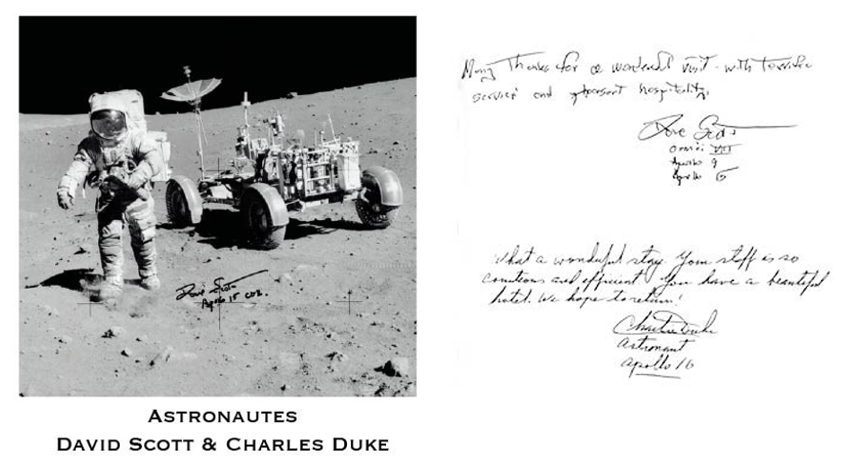 Dave Scott
Apollo 15 CDR.
ASTRONAUTES
DAVID SCOTT & CHARLES DUKE
Many Thanks for a wonderful visit - with terrific
service and pleasant hospitality.
Dave Scott
Gemini VIII
Apollo 9
Apollo 15
What a wonderful stay. Your staff is so
courteous and efficient. You have a beautiful
hotel. We hope to return!
Charlie Duke
Astronaut
Apollo 16